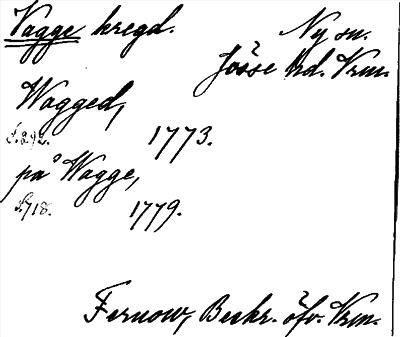 Vagge hregd.
Ny sn.
Jösse hd. Vrm.
Wagged,
S. 292. 1773.
på Wagge,
S. 718. 1779.
Fernow, Beskr. öfv. Vrm.